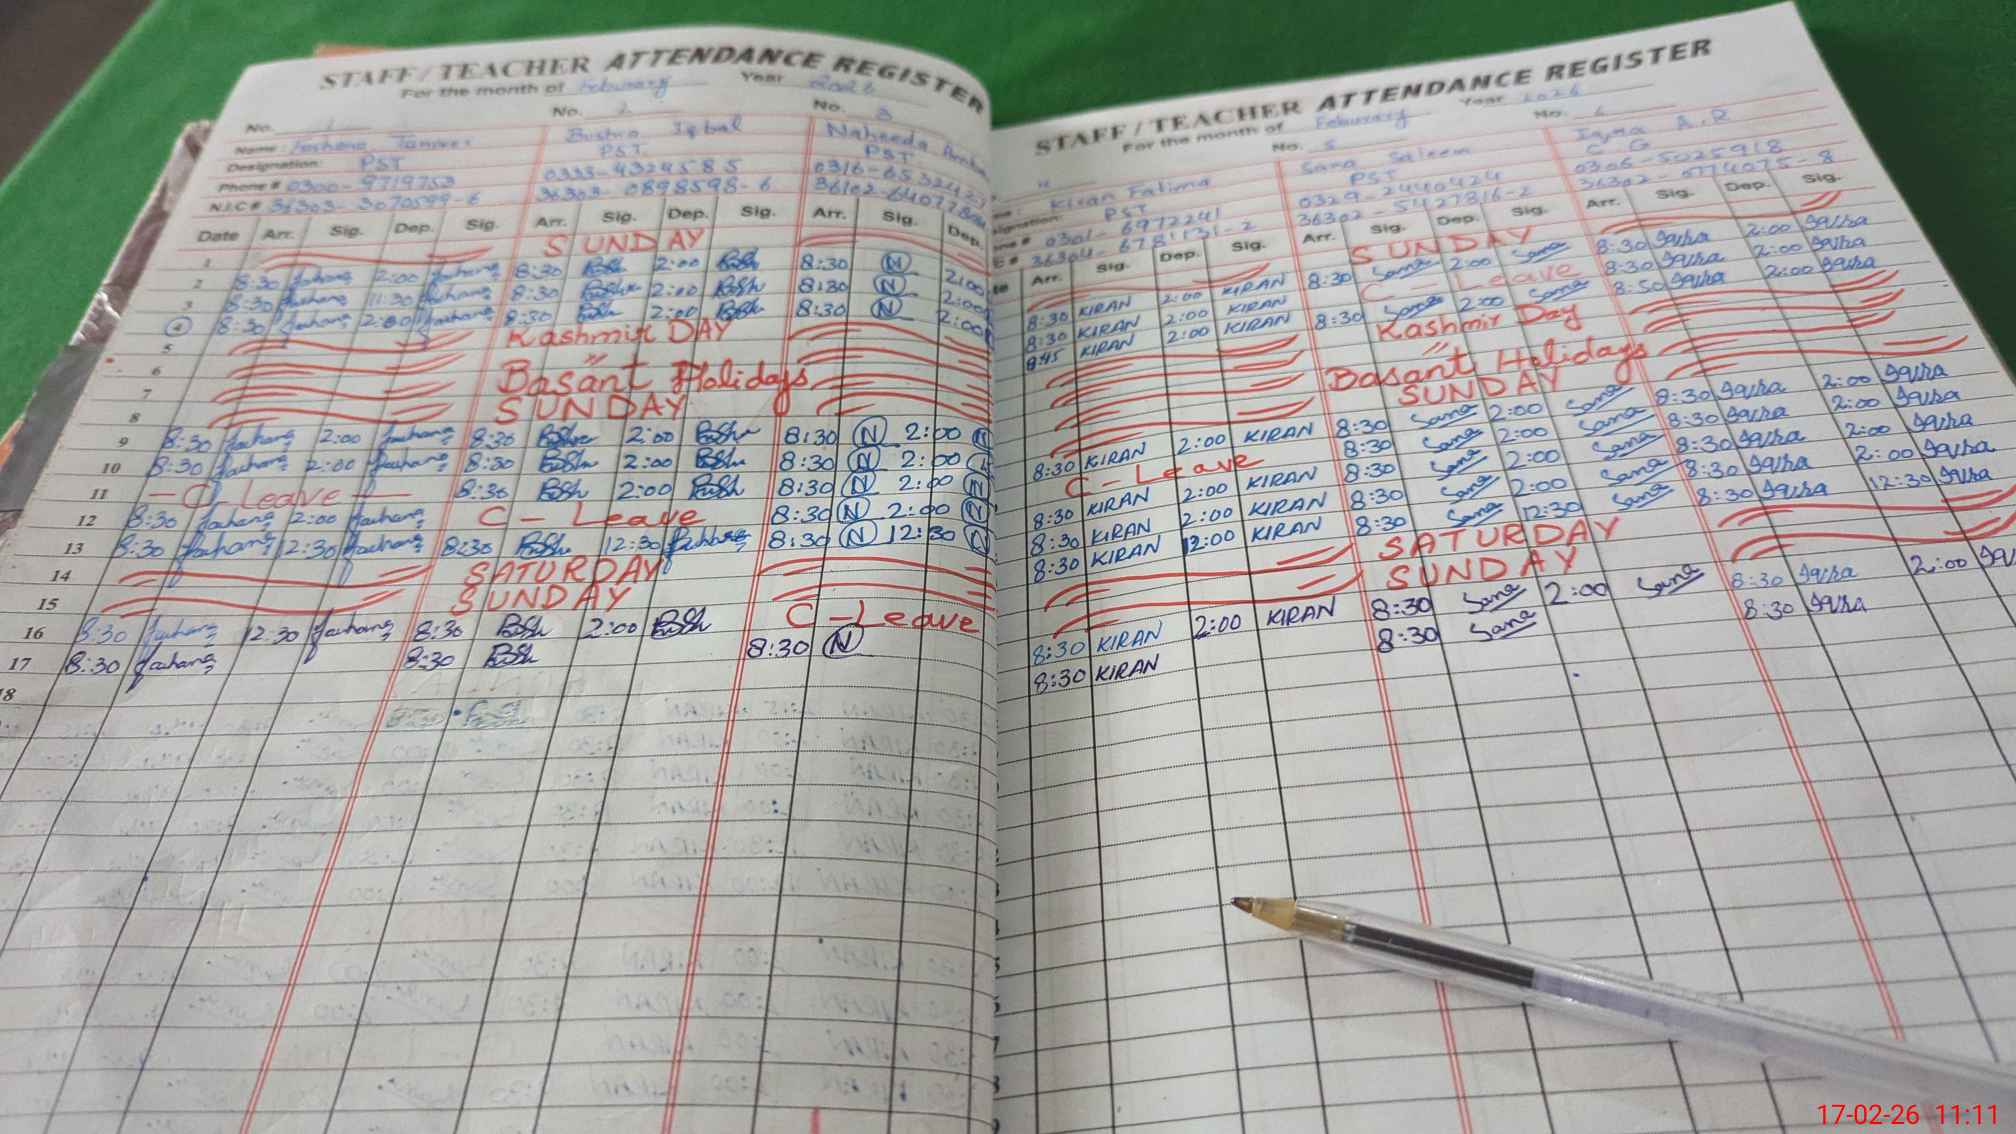 STAFF / TEACHER ATTENDANCE REGISTER
For the month of Feburary Year 2026
No. 1 No. 2 No. 3
Name: Farhana Bushra Iqbal Naheeda
Designation: PST PST PST
Phone # 0300-9719753 0333-4324585
N.I.C # 36303-3070599-6 36303-0898598-6
Date Arr. Sig. Dep. Sig. Arr. Sig. Dep. Sig. Arr. Sig. Dep.
1 SUNDAY
2 8:30 Farhana 2:00 Farhana 8:30 Bush 2:00 Bush 8:30 N 2:00
3 8:30 Farhana 11:30 Farhana 8:30 Bush 2:00 Bush 8:30 N 2:00
4 8:30 Farhana 2:00 Farhana 8:30 Bush 2:00 Bush 8:30 N 2:00
5 Kashmir DAY
6 "
7 Basant Holidays
8 SUNDAY
9 8:30 Farhana 2:00 Farhana 8:30 Bush 2:00 Bush 8:30 N 2:00 N
10 8:30 Farhana 2:00 Farhana 8:30 Bush 2:00 Bush 8:30 N 2:00 N
11 - C - Leave - 8:30 Bush 2:00 Bush 8:30 N 2:00 N
12 8:30 Farhana 2:00 Farhana C - Leave 8:30 N 2:00 N
13 8:30 Farhana 12:30 Farhana 8:30 Bush 12:30 Farhana 8:30 N 12:30 N
14 SATURDAY
15 SUNDAY
16 8:30 Farhana 12:30 Farhana 8:30 Bush 2:00 Bush C - Leave
17 8:30 Farhana 8:30 Bush 8:30 N
18
STAFF / TEACHER ATTENDANCE REGISTER
For the month of Feburary Year 2026
No. 5 No. 6
Kiran Fatima Sana Saleem Iqra A.R
PST PST C G
0301-6972241 0329-2440424 0306-5025918
36304-6781131-2 36302-5427816-2 36302-5774075-8
Arr. Sig. Dep. Sig. Arr. Sig. Dep. Sig. Arr. Sig. Dep. Sig.
SUNDAY
8:30 KIRAN 2:00 KIRAN 8:30 Sana 2:00 Sana 8:30 Iqra 2:00 Iqra
8:30 KIRAN 2:00 KIRAN C - Leave 8:30 Iqra 2:00 Iqra
8:45 KIRAN 2:00 KIRAN 8:30 Sana 2:00 Sana 8:50 Iqra 2:00 Iqra
Kashmir Day
"
Basant Holidays
SUNDAY
8:30 KIRAN 2:00 KIRAN 8:30 Sana 2:00 Sana 8:30 Iqra 2:00 Iqra
C - Leave 8:30 Sana 2:00 Sana 8:30 Iqra 2:00 Iqra
8:30 KIRAN 2:00 KIRAN 8:30 Sana 2:00 Sana 8:30 Iqra 2:00 Iqra
8:30 KIRAN 2:00 KIRAN 8:30 Sana 2:00 Sana 8:30 Iqra 2:00 Iqra
8:30 KIRAN 12:00 KIRAN 8:30 Sana 12:30 Sana 8:30 Iqra 12:30 Iqra
SATURDAY
SUNDAY
8:30 KIRAN 2:00 KIRAN 8:30 Sana 2:00 Sana 8:30 Iqra 2:00
8:30 KIRAN 8:30 Sana 8:30 Iqra
17-02-26 11:11